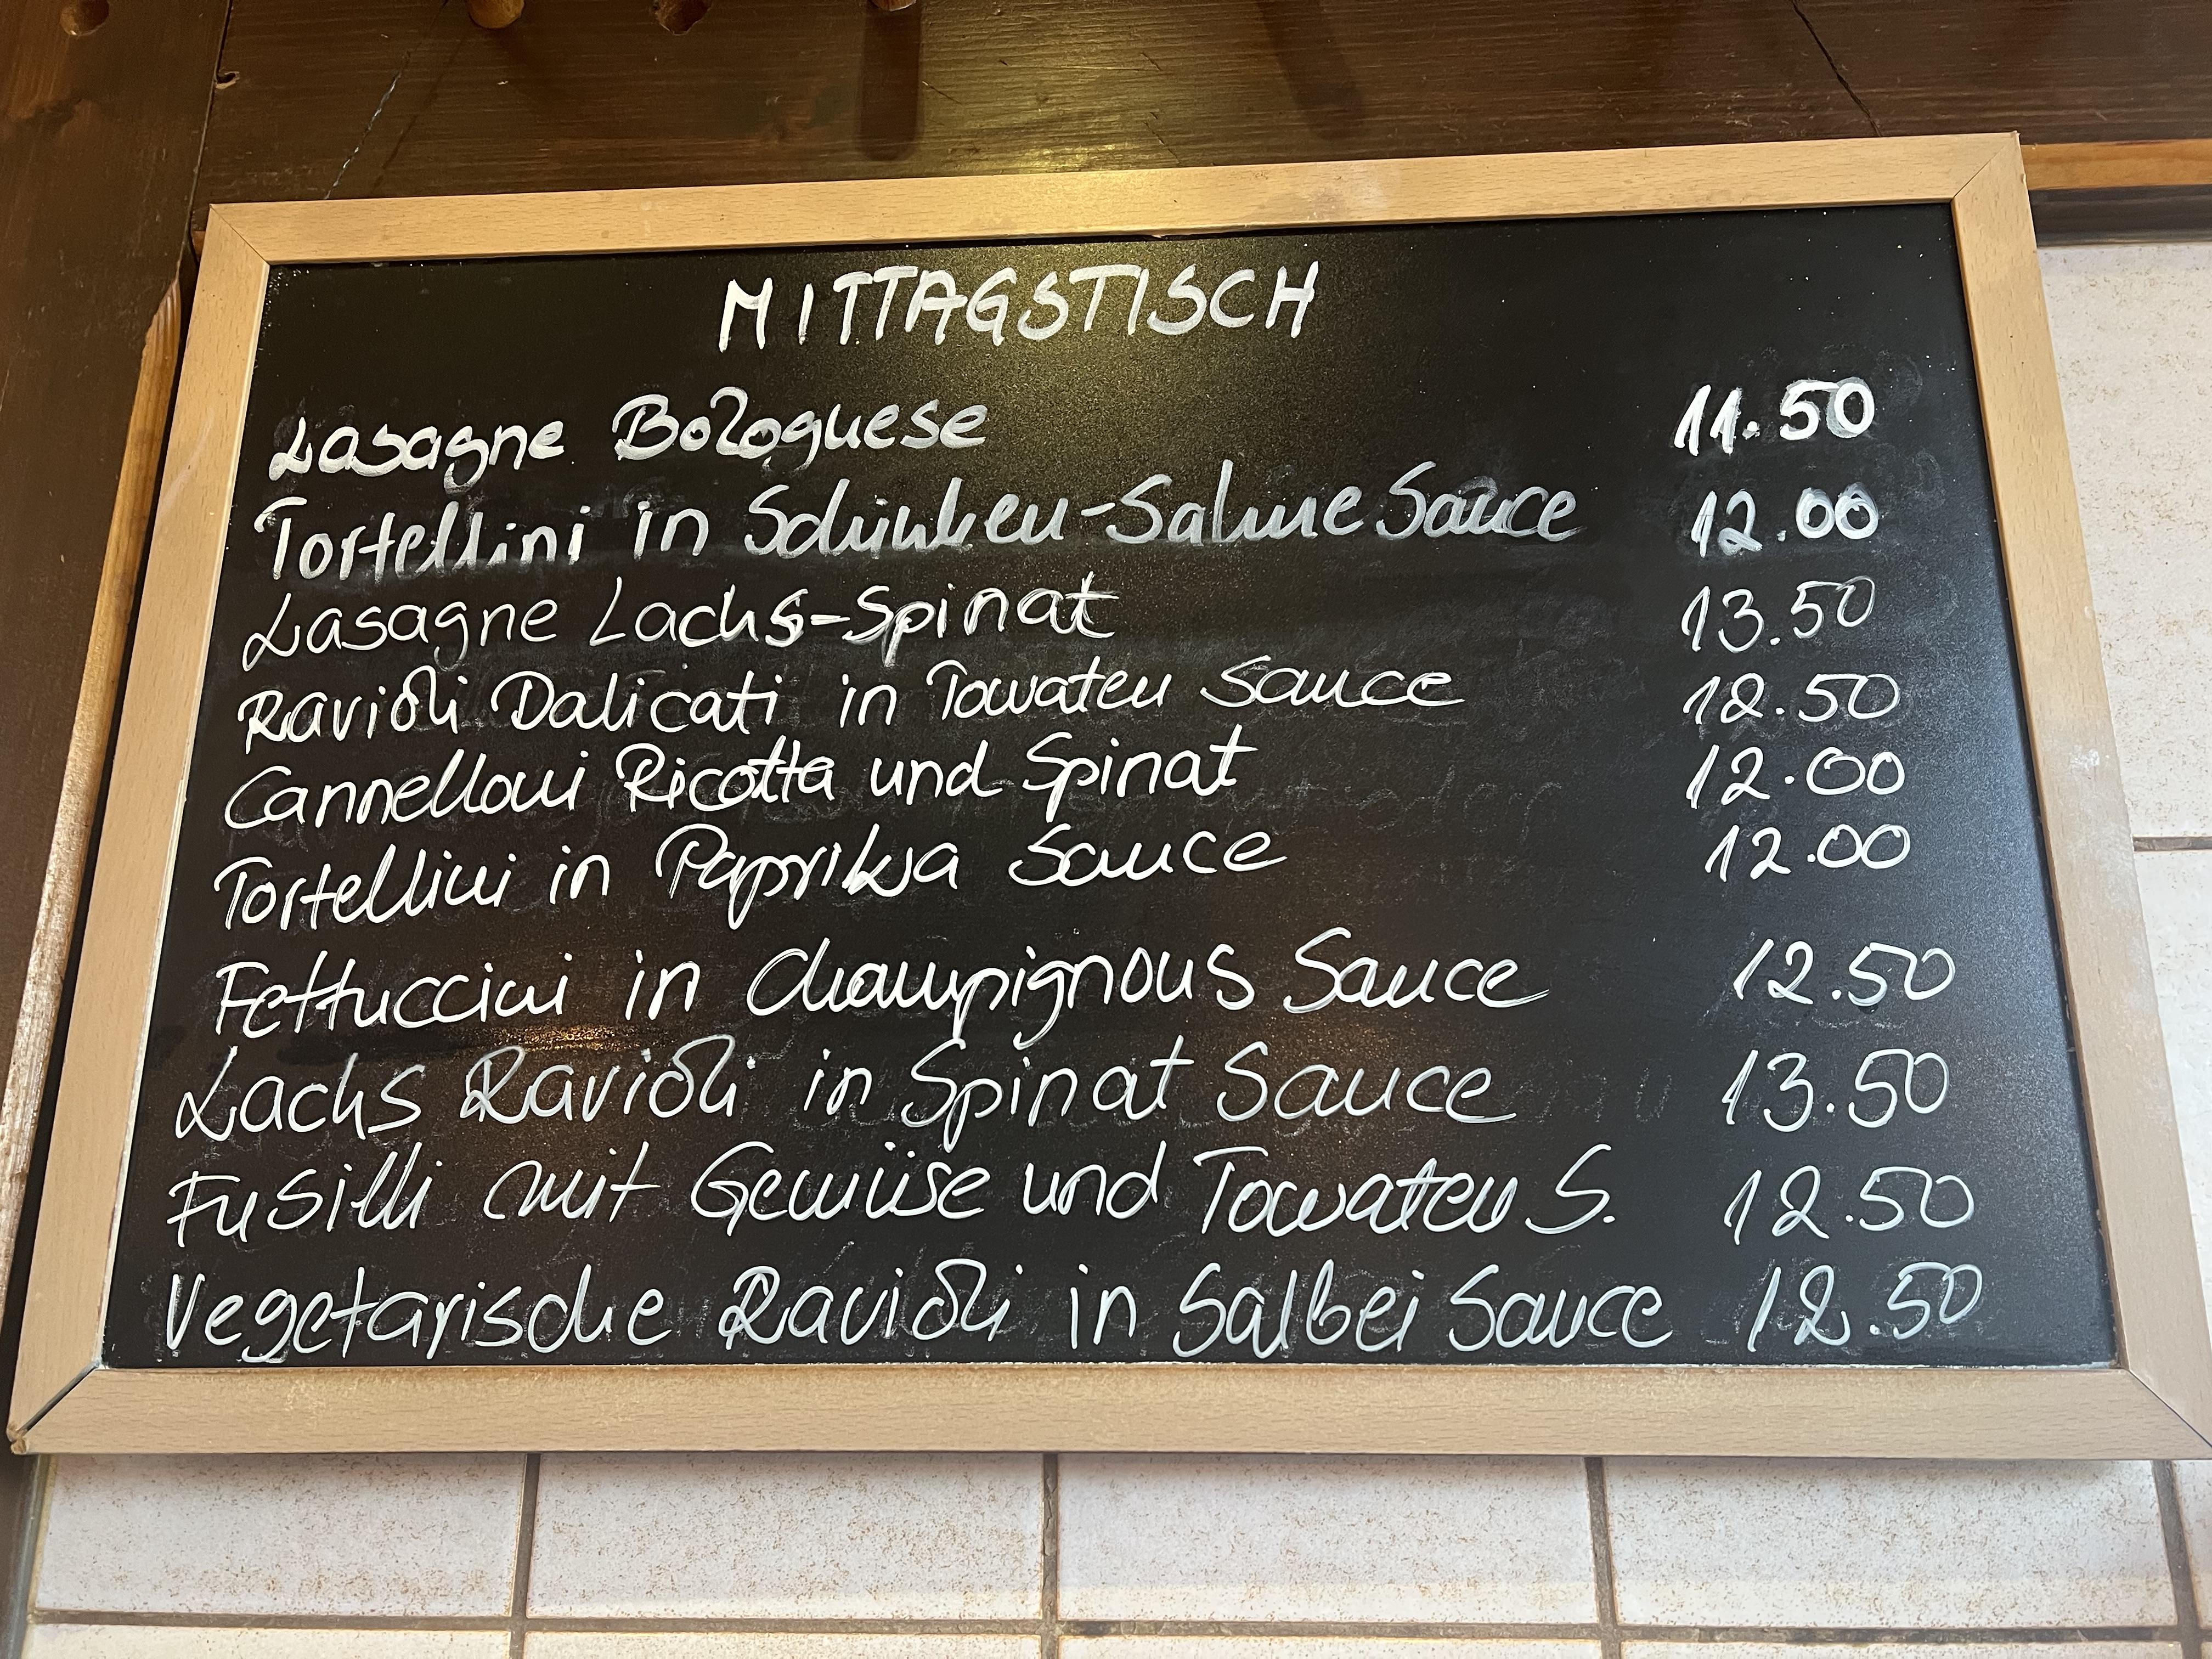 MITTAGSTISCH
Lasagne Bolognese 11.50
Tortellini in Schinken-Sahne Sauce 12.00
Lasagne Lachs-Spinat 13.50
Ravioli Dalicati in Tomaten Sauce 12.50
Cannelloni Ricotta und Spinat 12.00
Tortellini in Paprika Sauce 12.00
Fettuccini in Champignons Sauce 12.50
Lachs Ravioli in Spinat Sauce 13.50
Fusilli mit Gemüse und Tomaten S. 12.50
Vegetarische Ravioli in Salbei Sauce 12.50